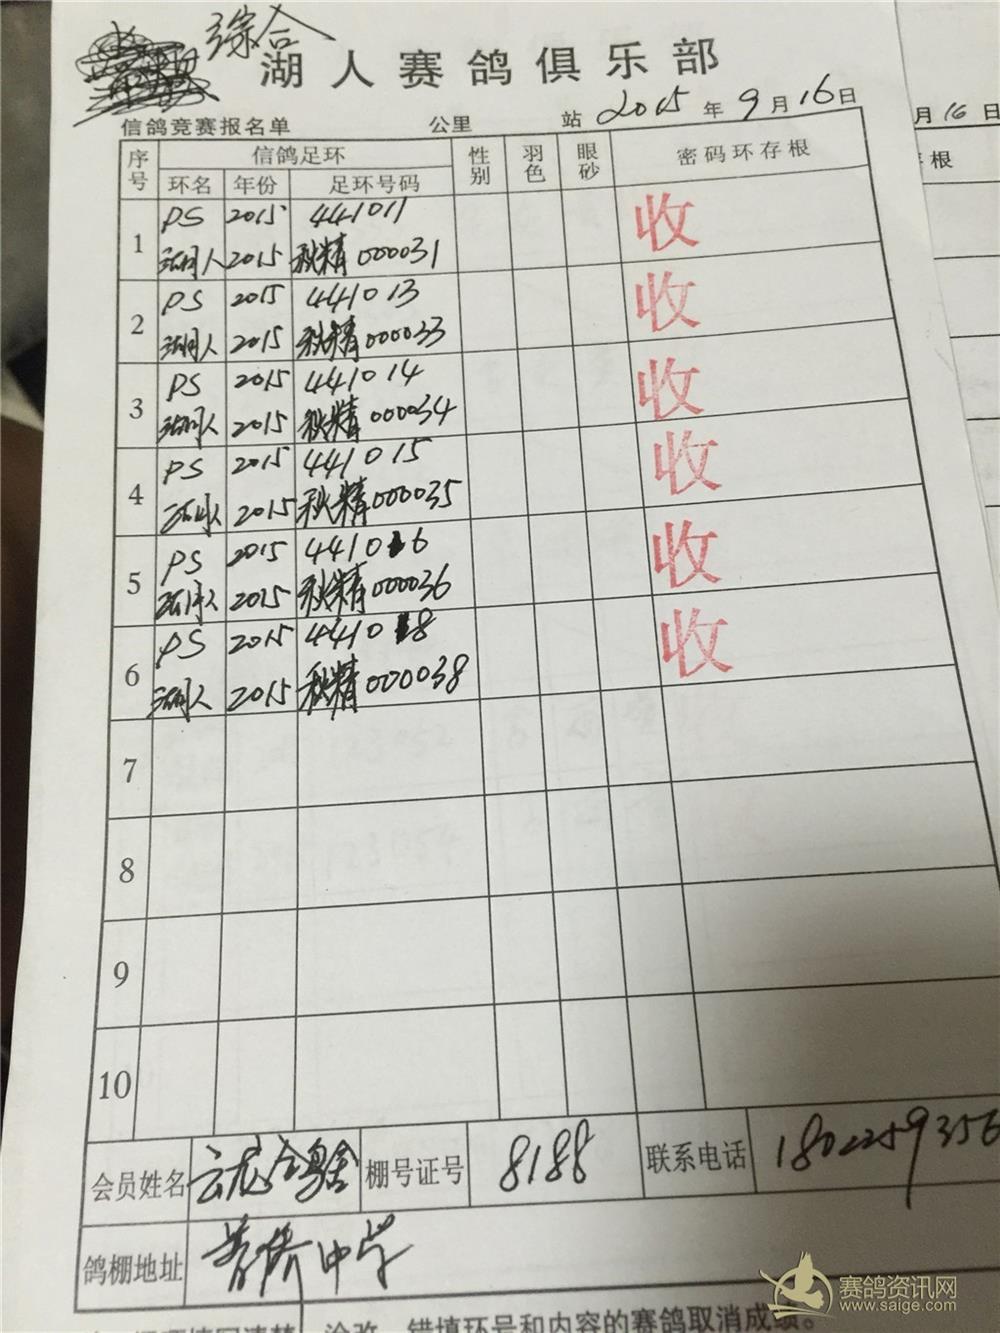 综合
湖人赛鸽俱乐部
信鸽竞赛报名单 公里 站 2015 年 9 月 16 日
序号 信鸽足环 性别 羽色 眼砂 密码环存根
环名 年份 足环号码
1 PS 2015 441011 收
湖人 2015 秋精 000031
2 PS 2015 441013 收
湖人 2015 秋精 000033
3 PS 2015 441014 收
湖人 2015 秋精 000034
4 PS 2015 441015 收
湖人 2015 秋精 000035
5 PS 2015 441016 收
湖人 2015 秋精 000036
6 PS 2015 441018 收
湖人 2015 秋精 000038
7
8
9
10
会员姓名 云龙 舍 棚号证号 8188 联系电话 1802259356
鸽棚地址 中学
涂改、错填环号和内容的赛鸽取消成绩。
月 16 日
存根
赛鸽资讯网
www.saige.com